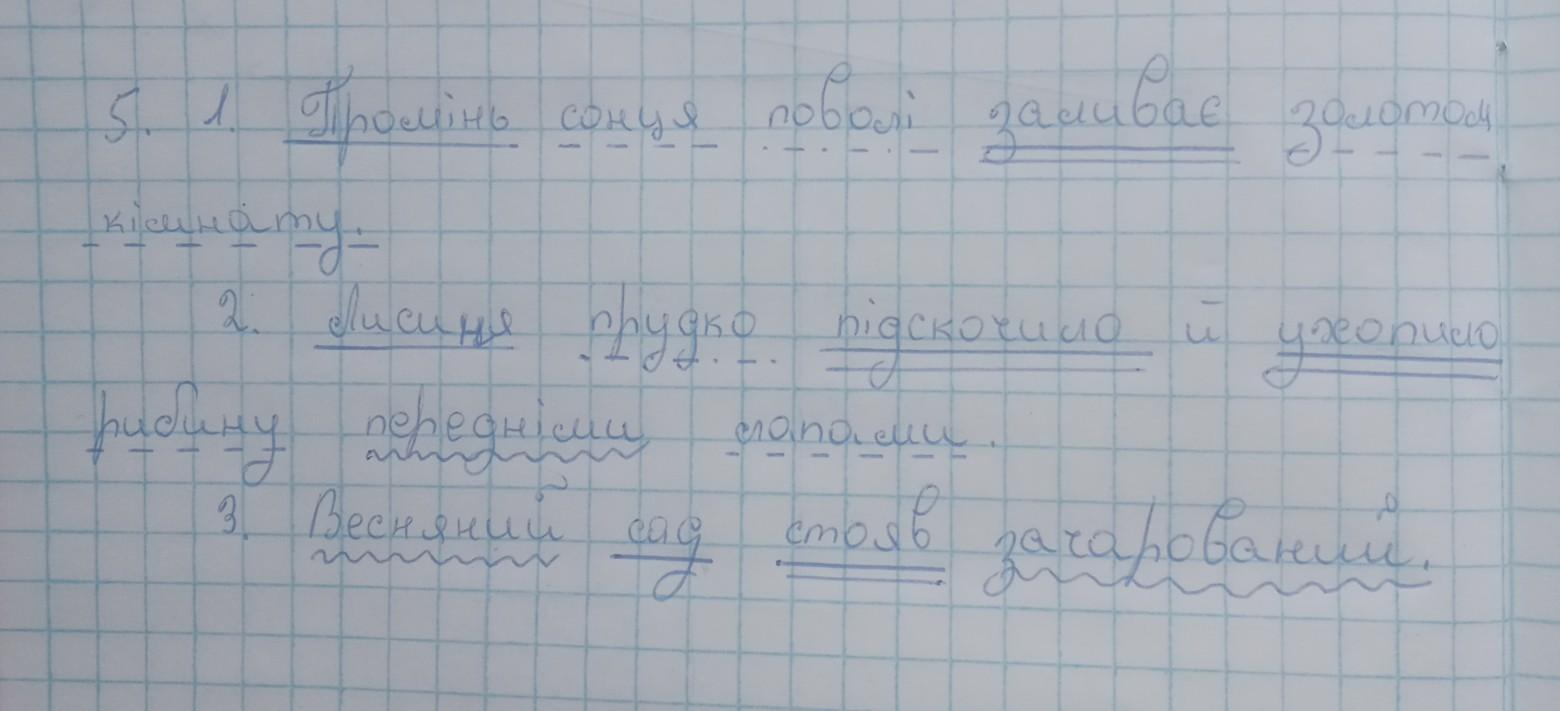 5. 1. Промінь сонця поволі заливає золотом
кімнату.
2. Лисиця прудко підскочила й ухопила
рибину передніми лапами.
3. Весняний сад стояв зачарований.